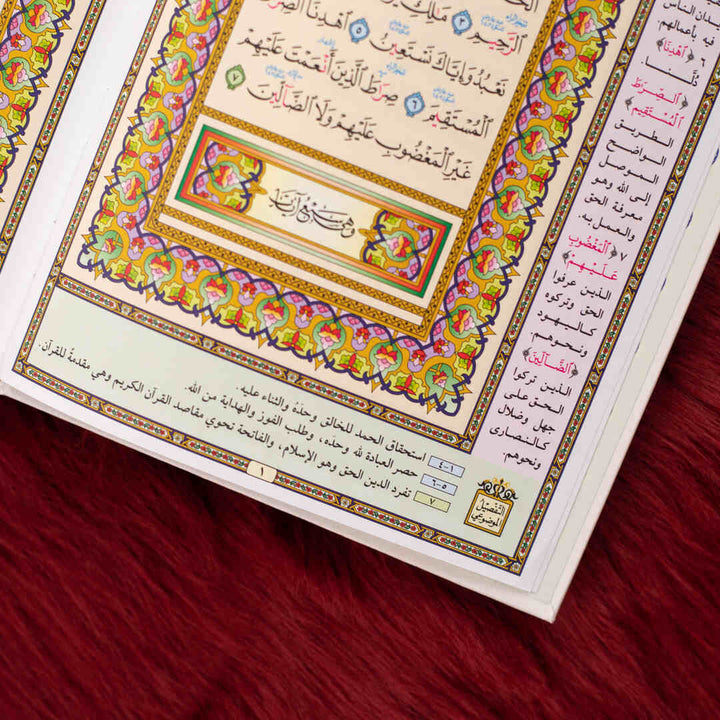 الرَّحِيمِ ٣ مَٰلِكِ
نَعْبُدُ وَإِيَّاكَ نَسْتَعِينُ ٥ ٱهْدِنَا ٱلصِّرَٰطَ
ٱلْمُسْتَقِيمَ ٦ صِرَٰطَ ٱلَّذِينَ أَنْعَمْتَ عَلَيْهِمْ
غَيْرِ ٱلْمَغْضُوبِ عَلَيْهِمْ وَلَا ٱلضَّآلِّينَ ٧
وهي سبع آيات
فيه بأعمالهم
٦ ﴿ٱهْدِنَا﴾
دلّنا.
﴿ٱلصِّرَٰطَ
ٱلْمُسْتَقِيمَ﴾
الطريق
الواضح
الموصل
إلى الله وهو
معرفة الحق
والعمل به.
٧ ﴿ٱلْمَغْضُوبِ
عَلَيْهِمْ﴾
الذين عرفوا
الحق وتركوه
كاليهود
ونحوهم.
﴿ٱلضَّآلِّينَ﴾
الذين تركوا
الحق على
جهل وضلال
كالنصارى
ونحوهم.
١-٤ استحقاق الحمد للخالق وحدَهُ والثناء عليه.
٥-٦ حصر العبادة لله وحده، وطلب الفوز والهداية من الله.
٧ تفرد الدين الحق وهو الإسلام، والفاتحة تحوي مقاصد القرآن الكريم وهي مقدمةٌ للقرآن.
التفصيل
الموضوعي
١